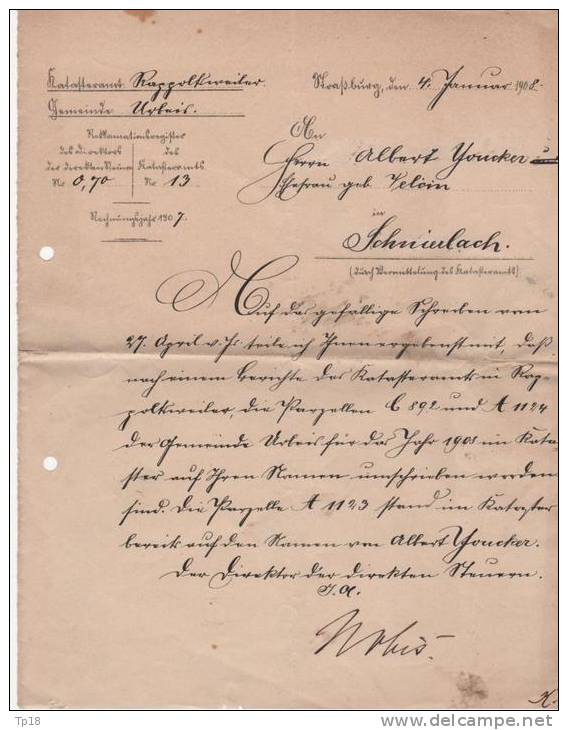 Katasteramt Rappoltsweiler.
Gemeinde Urbeis.
Straßburg, den 4. Januar 1908.
Reklamationsregister
des Direktors der direkten Steuern
Nr. 0,70
des Katasteramts
Nr. 13
Rechnungsjahr 1907.
An
Herrn Albert Youcker
Ehefrau geb. Veloin
in
Schnierlach.
(durch Vermittelung des Katasteramts)
Auf das gefällige Schreiben vom
27. April v. Js. teile ich Ihnen ergebenst mit, daß
nach einem Berichte des Katasteramts in Rap-
poltsweiler, die Parzellen C 892 und A 1124
der Gemeinde Urbeis für das Jahr 1908 im Kata-
ster auf Ihren Namen umschrieben worden
sind. Die Parzelle A 1123 stand im Kataster
bereits auf den Namen von Albert Youcker.
Der Direktor der direkten Steuern.
I. A.
Nobis.
K.
Tp18
www.delcampe.net